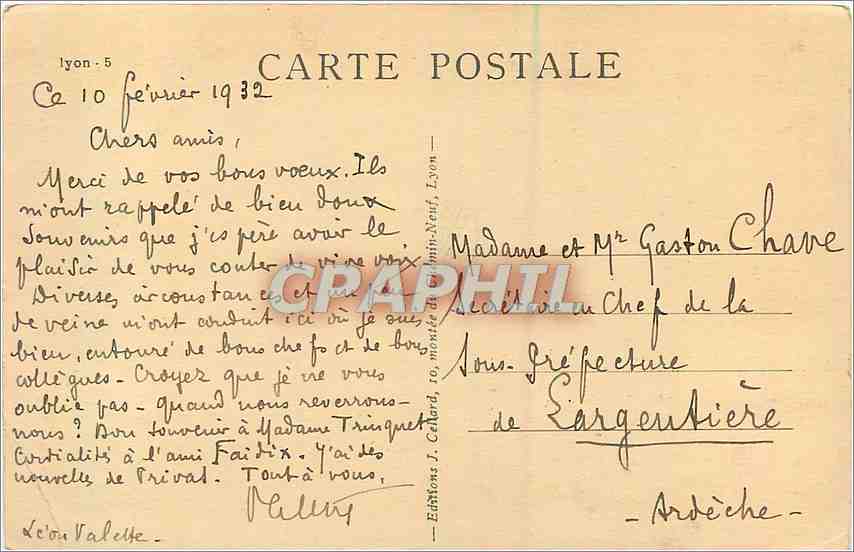 lyon - 5
CARTE POSTALE
Ce 10 février 1932
Chers amis,
Merci de vos bons vœux. Ils
m'ont rappelé de bien doux
souvenirs que j'espère avoir le
plaisir de vous conter de vive voix
Diverses circonstances et un peu
de veine m'ont conduit ici où je suis
bien, entouré de bons chefs et de bons
collègues - Croyez que je ne vous
oublie pas - quand nous reverrons-
nous ? Bon souvenir à Madame Trinquet
Cordialités à l'ami Faidix. J'ai des
nouvelles de Privat. Tout à vous,
Léon Valette -
— Editions J. Cellard, 10, montée du Chemin-Neuf, Lyon —
Madame et Mr Gaston Chave
Secrétaire en Chef de la
Sous-Préfecture
de Largentière
- Ardèche -
CPAPHIL